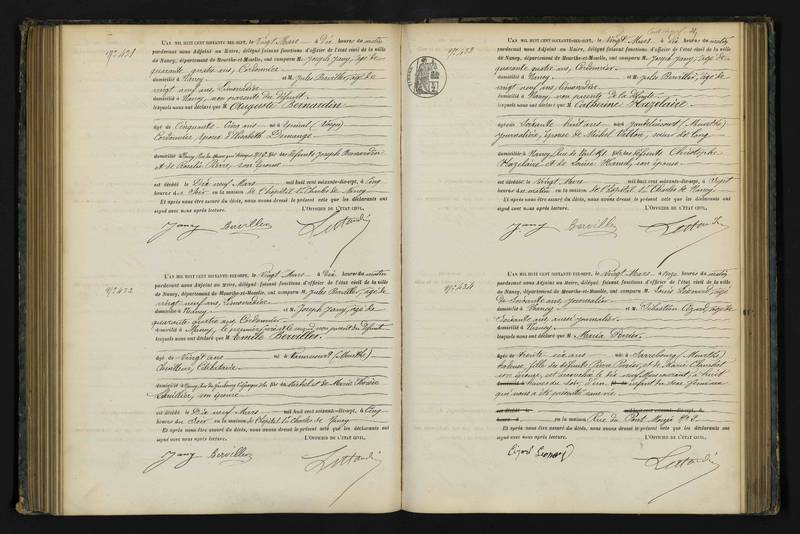 N° 431
L'AN MIL HUIT CENT SOIXANTE-DIX-SEPT, le Vingt Mars à Dix heures du matin
pardevant nous Adjoint au Maire, délégué faisant fonctions d'officier de l'état civil de la ville
de Nancy, département de Meurthe-et-Moselle, ont comparu M. Joseph Jany, âgé de
quarante quatre ans, Cordonnier
domicilié à Nancy et M. Jules Berviller, âgé de
vingt neuf ans, Limonadier
domicilié à Nancy, non parents du défunt
lesquels nous ont déclaré que M. Auguste Bernardin
âgé de Cinquante Cinq ans né à Epinal (Vosges)
Cordonnier, époux d'Elisabeth Demange
domicilié à Nancy, fils des défunts Joseph Bernardin
et de Rosalie Pierre, son épouse
est décédé le Dix neuf Mars mil huit cent soixante-dix-sept, à Cinq
heures du Soir en la maison de l'hôpital St Charles de Nancy
Et après nous être assuré du décès, nous avons dressé le présent acte que les déclarants ont
signé avec nous après lecture. L'OFFICIER DE L'ÉTAT CIVIL,
Jany Berviller
N° 432
L'AN MIL HUIT CENT SOIXANTE-DIX-SEPT, le Vingt Mars à Dix heures du matin
pardevant nous Adjoint au Maire, délégué faisant fonctions d'officier de l'état civil de la ville
de Nancy, département de Meurthe-et-Moselle, ont comparu M. Jules Berviller, âgé de
vingt neuf ans, Limonadier
domicilié à Nancy et M. Joseph Jany, âgé de
quarante quatre ans, Cordonnier
domicilié à Nancy, le premier frère et le second non parent du défunt
lesquels nous ont déclaré que M. Emile Berviller
âgé de Vingt ans né à (Meurthe)
Célibataire
domicilié à Nancy, fils de et de Marie Thérèse
son épouse
est décédé le Dix neuf Mars mil huit cent soixante-dix-sept, à Cinq
heures du Soir en la maison de l'hôpital St Charles de Nancy
Et après nous être assuré du décès, nous avons dressé le présent acte que les déclarants ont
signé avec nous après lecture. L'OFFICIER DE L'ÉTAT CIVIL,
Jany Berviller
N° 433
L'AN MIL HUIT CENT SOIXANTE-DIX-SEPT, le Vingt Mars à Dix heures du matin
pardevant nous Adjoint au Maire, délégué faisant fonctions d'officier de l'état civil de la ville
de Nancy, département de Meurthe-et-Moselle, ont comparu M. Joseph Jany, âgé de
quarante quatre ans, Cordonnier
domicilié à Nancy et M. Jules Berviller, âgé de
vingt neuf ans, Limonadier
domicilié à Nancy, non parents de la défunte
lesquels nous ont déclaré que M Catherine Hazelaire
âgée de Soixante huit ans née à (Meurthe)
Journalière, épouse de Michel
domiciliée à Nancy, fille des défunts Christophe
Hazelaire et de Louise son épouse
est décédée le Vingt Mars mil huit cent soixante-dix-sept, à
heures du matin en la maison de l'hôpital St Charles de Nancy
Et après nous être assuré du décès, nous avons dressé le présent acte que les déclarants ont
signé avec nous après lecture. L'OFFICIER DE L'ÉTAT CIVIL,
Jany Berviller
N° 434
L'AN MIL HUIT CENT SOIXANTE-DIX-SEPT, le Vingt Mars à onze heures du matin
pardevant nous Adjoint au Maire, délégué faisant fonctions d'officier de l'état civil de la ville
de Nancy, département de Meurthe-et-Moselle, ont comparu M. Louis Léonard, âgé
de Soixante ans, Journalier
domicilié à Nancy et M. Sébastien âgé de
Soixante ans, aussi journalier
domicilié à Nancy
lesquels nous ont déclaré que M Maria Poirier
âgée de trente six ans née à Sarrebourg (Meurthe)
fille des défunts Pierre Poirier, et de Marie
son épouse, est accouchée le dix neuf Mars courant, à huit
heures du soir, d'un enfant du sexe féminin
qui nous a été présenté sans vie
en la maison Rue du Pont Mouja N° 2
Et après nous être assuré du décès, nous avons dressé le présent acte que les déclarants ont
signé avec nous après lecture. L'OFFICIER DE L'ÉTAT CIVIL,
Léonard